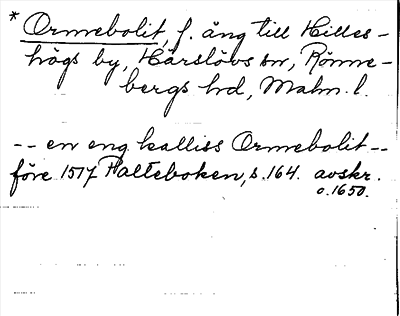 * Ormebolit, f. äng till Hilles-
högs by, Härslövs sn, Rönne-
bergs hd, Malm. l.
-- en eng kalliss Ormebolit --
före 1517 Palteboken, s. 164. avskr.
o. 1650.